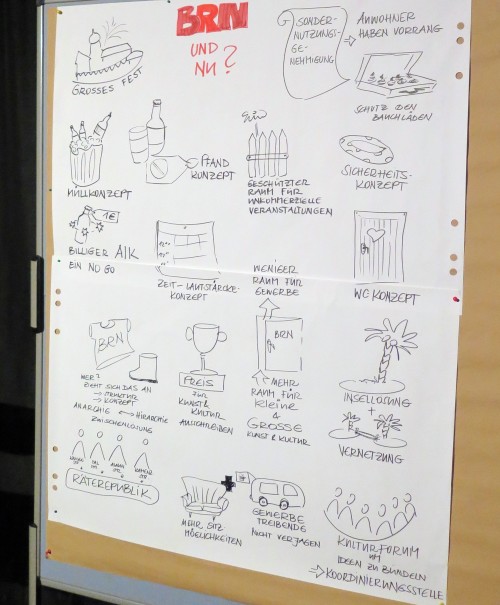 BRN
UND
NU?
SONDER-
NUTZUNGS-
GE-
NEHMIGUNG
ANWOHNER
HABEN VORRANG
GROSSES FEST
SCHUTZ DEN
BAUCHLÄDEN
MÜLLKONZEPT
PFAND
KONZEPT
GESCHÜTZTER
RAUM FÜR
UNKOMMERZIELLE
VERANSTALTUNGEN
SICHERHEITS-
KONZEPT
1€
BILLIGER ALK
EIN NO GO
ZEIT-LAUTSTÄRCKE-
KONZEPT
WENIGER
RAUM FÜR
GEWERBE
WC KONZEPT
BRN
WER?
ZIEHT SICH DAS AN
→ STRUKTUR
→ KONZEPT
ANARCHIE ↔ HIRARCHIE
ZWISCHENLÖSUNG
PREIS
FÜR
KUNST &
KULTUR
AUSSCHREIBEN
BRN
MEHR
RAUM FÜR
KLEINE
&
GROSSE
KUNST & KULTUR
INSELLÖSUNG
+
VERNETZUNG
RÄTEREPUBLIK
MEHR SITZ-
MÖGLICHKEITEN
GEWERBE
TREIBENDE
NICHT VERJAGEN
KULTURFORUM
UM
IDEEN ZU BÜNDELN
→ KOORDINIERUNGSSTELLE